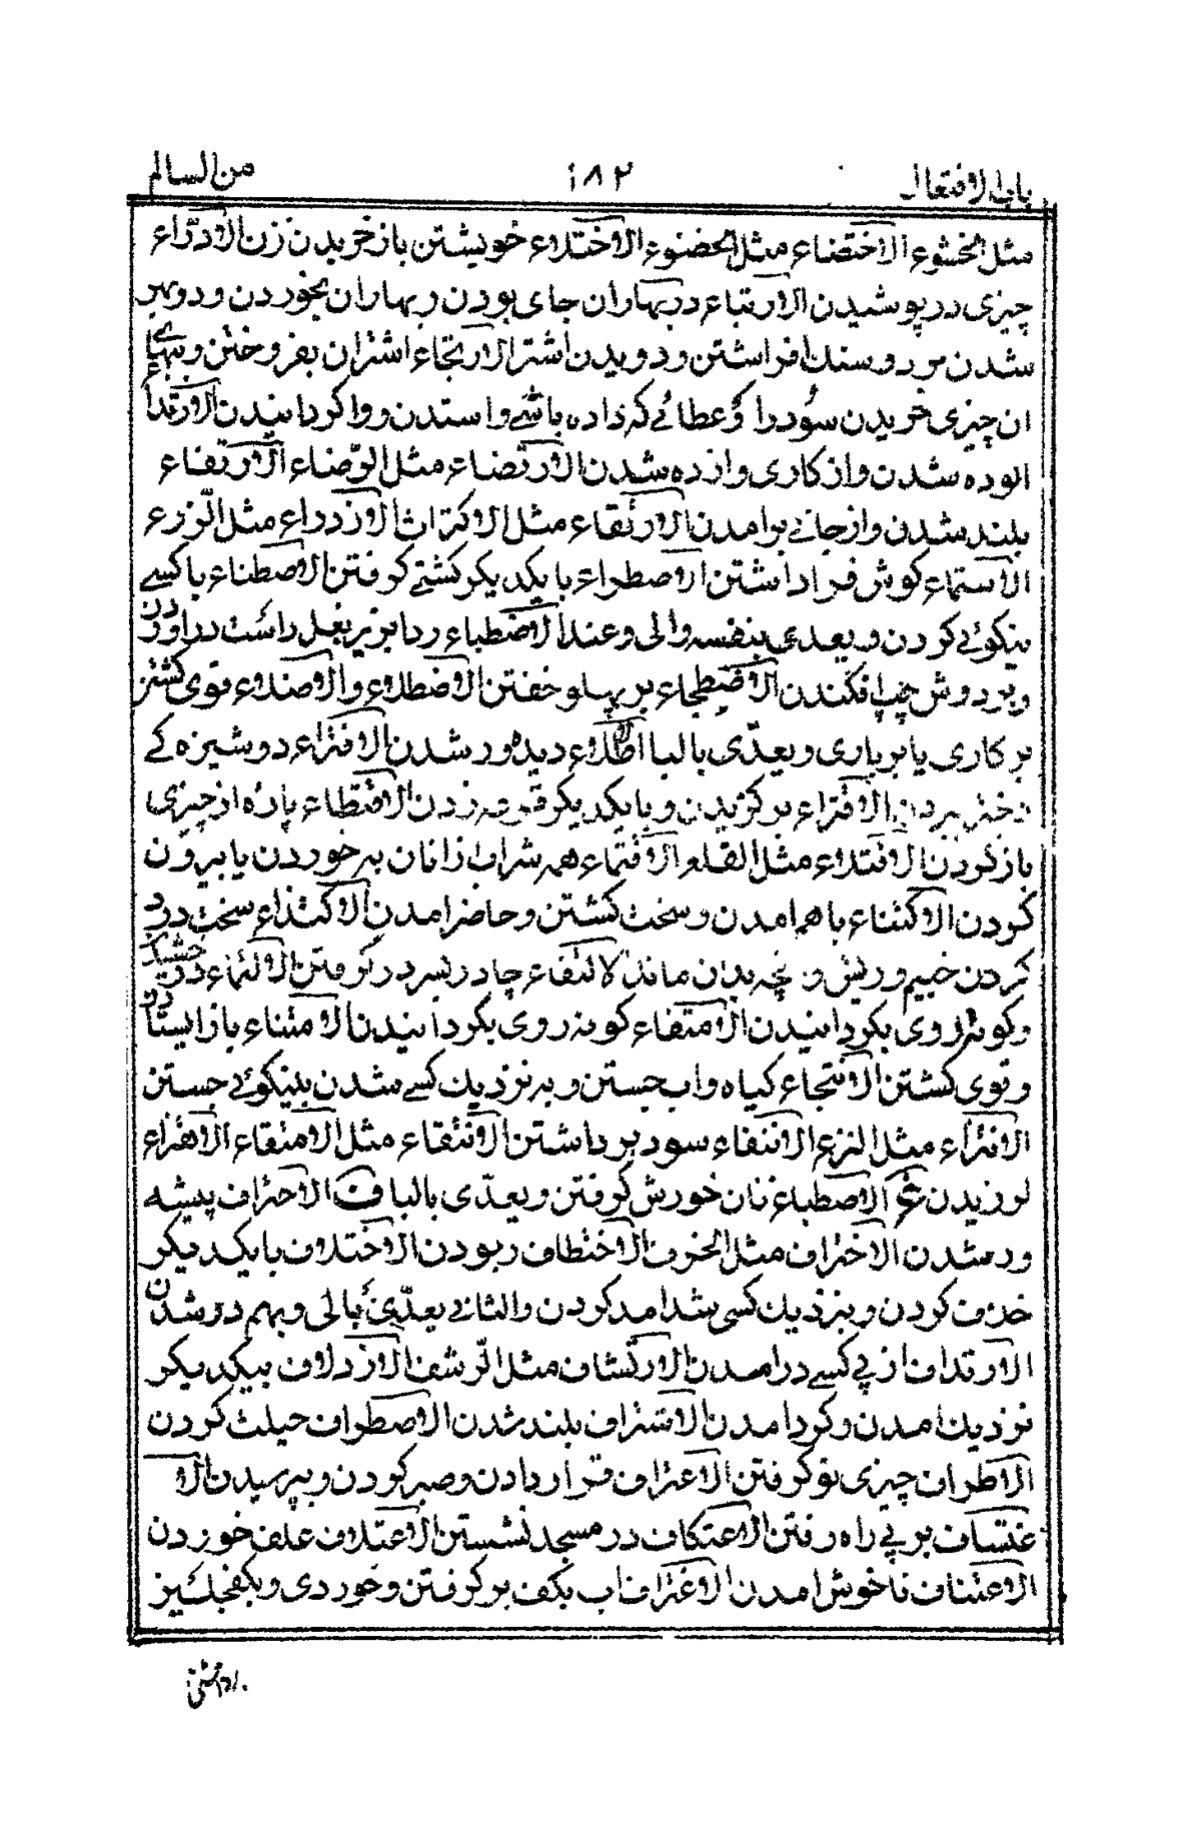 باب الافتعال ١٨٢ من السالم
مثل الخشوع الاختضاع مثل الخضوع الاختلاع خویشتن باز خریدن زن الادراع
چیزی در پوشیدن الارتباع در بهاران جای بودن و بهاران بخوردن و دوبهر
شدن مرد و سنك افراشتن و دویدن اشتر الارتجاع اشتران بفروختن و ببهای
ان چیزی خریدن سودرا و عطائے که داده باشے وا ستدن و وا کردانیدن الارتداع
الوده شدن و از کاری وازده شدن الارتضاع مثل الرضاع الارتفاع
بلند شدن و از جائے برامدن الارتقاع مثل الاکتراث الازدراع مثل الزرع
الاستماع کوش فرا داشتن الاصطراع با یکدیکر کشتے کرفتن الاصطناع با کسے
نیکوئے کردن و یعدی بنفسه والی وعند الاضطباع ردا بزیر بغل راست دراوردن
و بر دوش چپ افکندن الاضطجاع بر پهلو خفتن الاضطلاع والاصدلاع قوی کشتن
بر کاری یا بر باری و یعدی بالبا الاطلاع دیده ور شدن الافتراع دوشیزه کے
دختر ببردن الاقتراع برکزیدن و با یکدیکر قرعه زدن الاقتطاع پاره از چیزی
باز کردن الاقتلاع مثل القلع الاقتماع همه شراب از انان به خوردن یا بیرون
کردن الاکتناع باهم امدن و سخت کشتن و حاضر امدن الالتذاع سخت درد
کردن خییم و ریش و بچه بدان ماند الالتفاع چادر بسر در کرفتن الالتماع درخشیدن
و کونه روی بکردانیدن الامتقاع کونه روی بکردانیدن الامتناع باز ایستادن
و قوی کشتن الانتجاع کیاه و اب جستن و به نزدیك کسے شدن بنیکوئے جستن
الانتزاع مثل النزع الانتفاع سود برداشتن الانتقاع مثل الامتقاع الاهتزاع
لرزیدن غ الاصطباغ نان خورش کرفتن و یعدی بالبا ف الاحتراف پیشه
ور شدن الاختراف مثل الخرف الاختطاف ربودن الاختلاف با یکدیکر
خلاف کردن و بنزدیك کسی شد امد کردن والثانی یعدی بالی و بهم در شدن
الارتداف از پے کسے درامدن الارتشاف مثل الرشف الازدلاف بیکدیکر
نزدیك امدن و کرد امدن الاشتراف بلند شدن الاصطراف حیلت کردن
الاطراف چیزی نو کرفتن الاعتراف قرار دادن و صبر کردن و بپرسیدن الا
عتساف بر بے راه رفتن الاعتکاف در مسجد نشستن الاعتلاف علف خوردن
الاعتناف ناخوش امدن الاغتراف اب بکف برکرفتن و خوردی و بکفجلیز